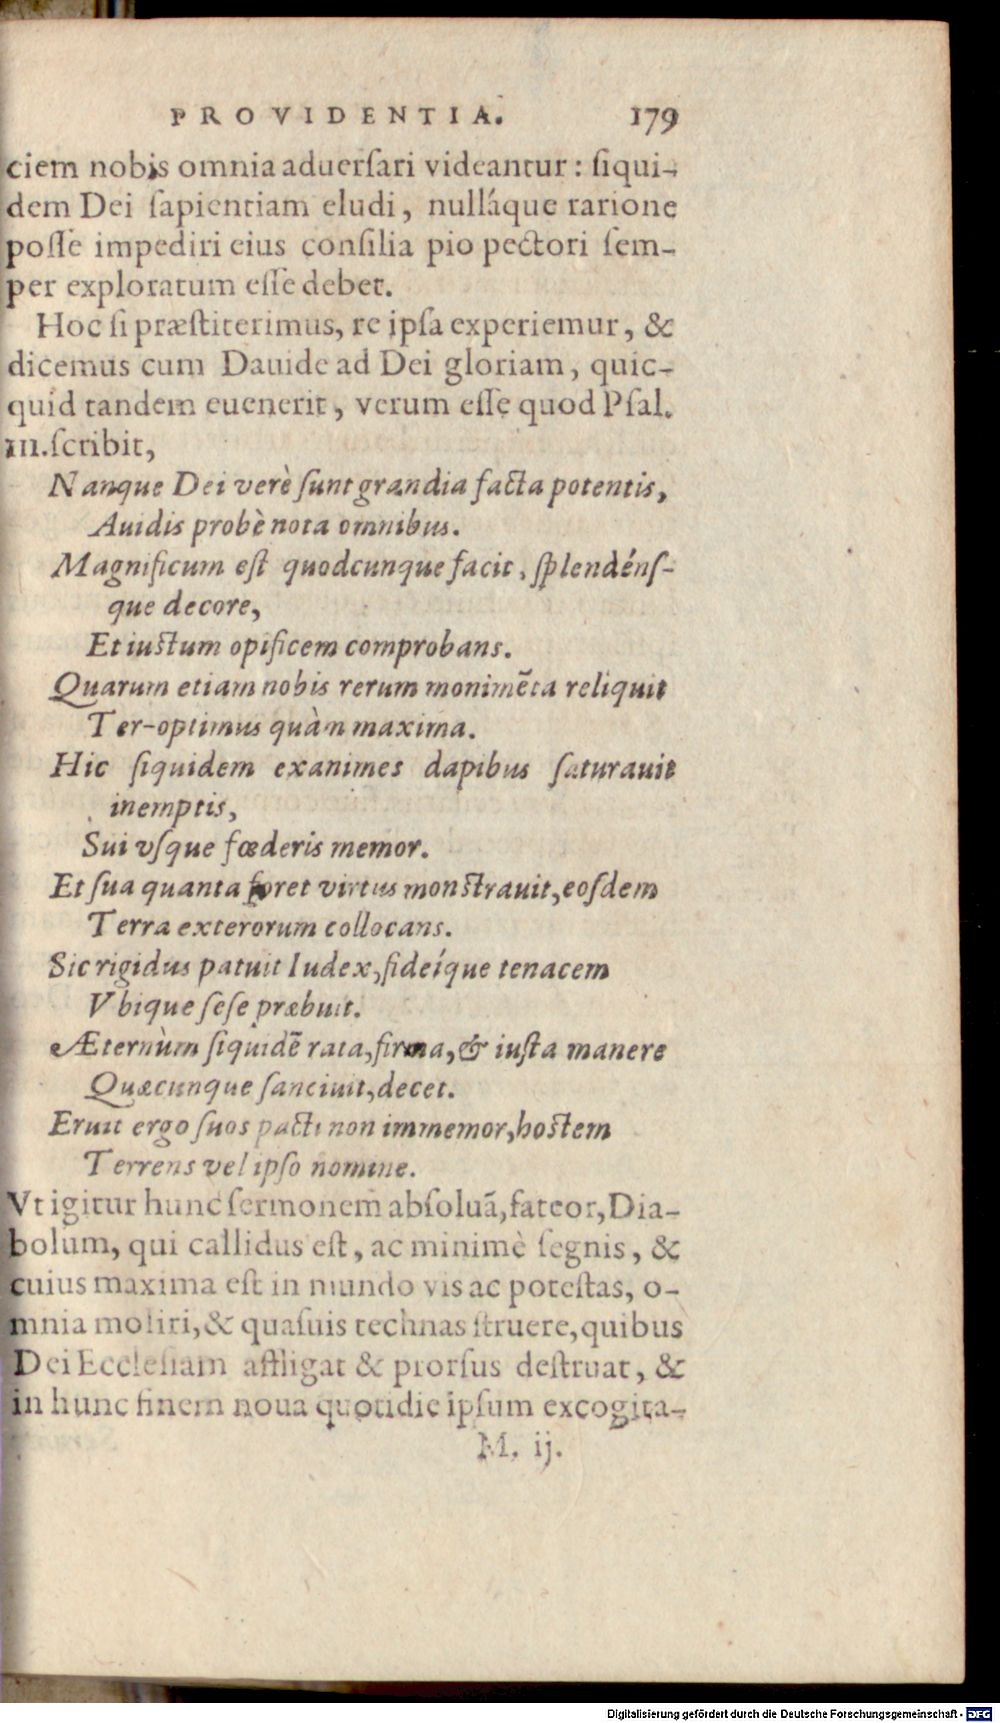 PROVIDENTIA. 179
ciem nobis omnia aduersari videantur: siqui-
dem Dei sapientiam eludi, nulláque ratione
posse impediri eius consilia pio pectori sem-
per exploratum esse debet.
Hoc si præstiterimus, re ipsa experiemur, &
dicemus cum Dauide ad Dei gloriam, quic-
quid tandem euenerit, verum esse quod Psal.
111. scribit,
Nanque Dei verè sunt grandia facta potentis,
Auidis probè nota omnibus.
Magnificum est quodcunque facit, splendéns-
que decore,
Et iustum opificem comprobans.
Quarum etiam nobis rerum monimẽta reliquit
Ter-optimus quàm maxima.
Hic siquidem exanimes dapibus saturauit
inemptis,
Sui vsque fœderis memor.
Et sua quanta foret virtus monstrauit, eosdem
Terra exterorum collocans.
Sic rigidus patuit Iudex, fideíque tenacem
Vbique sese præbuit.
Æternùm siquidẽ rata, firma, & iusta manere
Quæcunque sanciuit, decet.
Eruit ergo suos pacti non immemor, hostem
Terrens vel ipso nomine.
Vt igitur hunc sermonem absoluã, fateor, Dia-
bolum, qui callidus est, ac minimè segnis, &
cuius maxima est in mundo vis ac potestas, o-
mnia moliri, & quasuis technas struere, quibus
Dei Ecclesiam affligat & prorsus destruat, &
in hunc finem noua quotidie ipsum excogita-
M. ij.
Digitalisierung gefördert durch die Deutsche Forschungsgemeinschaft - DFG